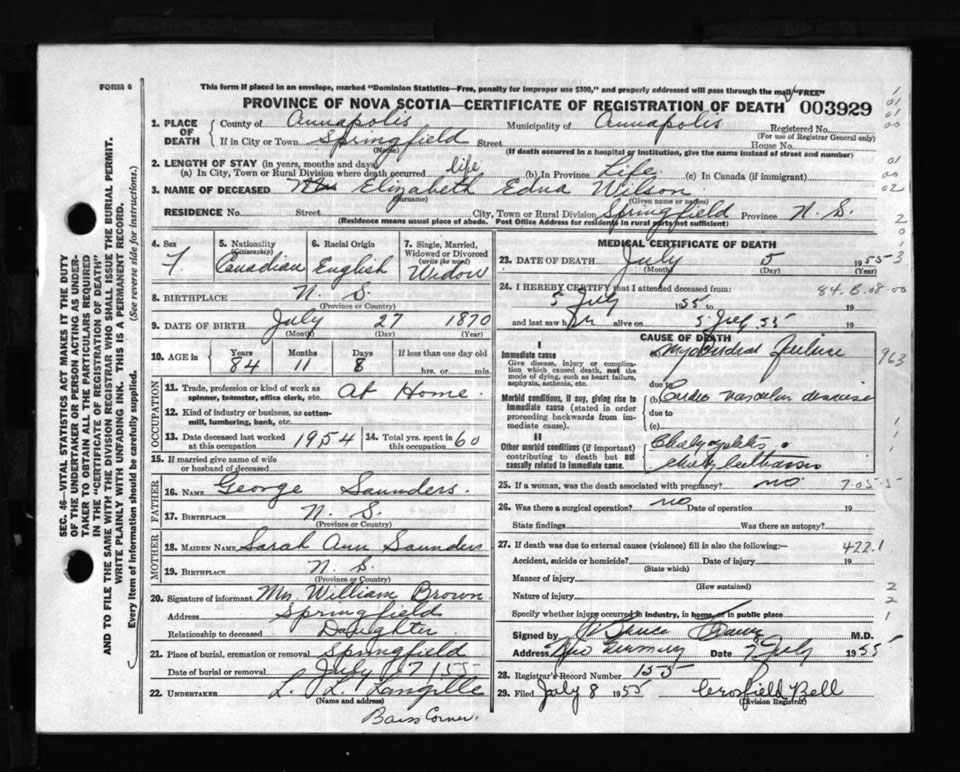 FORM 6
This form if placed in an envelope, marked "Dominion Statistics—Free, penalty for improper use $300," and properly addressed will pass through the mail "FREE"
PROVINCE OF NOVA SCOTIA—CERTIFICATE OF REGISTRATION OF DEATH 003929
1. PLACE OF DEATH
County of Annapolis Municipality of Annapolis Registered No.
(For use of Registrar General only)
If in City or Town Springfield Street House No.
(Name) (If death occurred in a hospital or institution, give the name instead of street and number)
2. LENGTH OF STAY (in years, months and days)
(a) In City, Town or Rural Division where death occurred life (b) In Province Life (c) In Canada (if immigrant)
3. NAME OF DECEASED Mrs Elizabeth Edna Wilson
(Surname) (Given name or names)
RESIDENCE No. Street City, Town or Rural Division Springfield Province N. S.
(Residence means usual place of abode. Post Office Address for residents in rural parts not sufficient)
4. Sex 5. Nationality (Citizenship) 6. Racial Origin 7. Single, Married, Widowed or Divorced (write the word)
F Canadian English Widow
8. BIRTHPLACE N. S.
(Province or Country)
9. DATE OF BIRTH July 27 1870
(Month) (Day) (Year)
10. AGE in Years Months Days If less than one day old
84 11 8 hrs. or min.
OCCUPATION
11. Trade, profession or kind of work as spinner, teamster, office clerk, etc. At Home.
12. Kind of industry or business, as cotton-mill, lumbering, bank, etc.
13. Date deceased last worked at this occupation 1954 14. Total yrs. spent in this occupation 60
15. If married give name of wife or husband of deceased
FATHER
16. NAME George Saunders.
17. BIRTHPLACE N. S.
(Province or Country)
MOTHER
18. MAIDEN NAME Sarah Ann Saunders
19. BIRTHPLACE N. S.
(Province or Country)
20. Signature of informant Mrs William Brown
Address Springfield
Relationship to deceased Daughter
21. Place of burial, cremation or removal Springfield
Date of burial or removal July 7 1955
22. UNDERTAKER L. L. Langille
(Name and address)
Barss Corner.
MEDICAL CERTIFICATE OF DEATH
23. DATE OF DEATH July 5 1955
(Month) (Day) (Year)
24. I HEREBY CERTIFY that I attended deceased from:
5 July 1955 to 19
and last saw h alive on 5 July 55 19
CAUSE OF DEATH
I
Immediate cause
Give disease, injury or complication which caused death, not the mode of dying, such as heart failure, asphyxia, asthenia, etc.
(a) Myocardial Failure
due to
Morbid conditions, if any, giving rise to immediate cause (stated in order proceeding backwards from immediate cause).
(b) Cardio vascular disease
due to
(c)
II
Other morbid conditions (if important) contributing to death but not causally related to immediate cause.
25. If a woman, was the death associated with pregnancy? no
26. Was there a surgical operation? no Date of operation 19
State findings Was there an autopsy?
27. If death was due to external causes (violence) fill in also the following:—
Accident, suicide or homicide? Date of injury 19
(State which)
Manner of injury
(How sustained)
Nature of injury
Specify whether injury occurred in industry, in home, or in public place
Signed by M.D.
Address New Germany Date 7 July 1955
28. Registrar's Record Number 155
29. Filed July 8 1955 Crosfield Bell
(Division Registrar)
84 6.08.00
963
7.05.5
422.1
SEC. 46—VITAL STATISTICS ACT MAKES IT THE DUTY OF THE UNDERTAKER OR PERSON ACTING AS UNDERTAKER TO OBTAIN ALL THE PARTICULARS REQUIRED IN THE "CERTIFICATE OF REGISTRATION OF DEATH"
AND TO FILE THE SAME WITH THE DIVISION REGISTRAR WHO SHALL ISSUE THE BURIAL PERMIT.
WRITE PLAINLY WITH UNFADING INK. THIS IS A PERMANENT RECORD.
Every item of information should be carefully supplied. (See reverse side for instructions.)